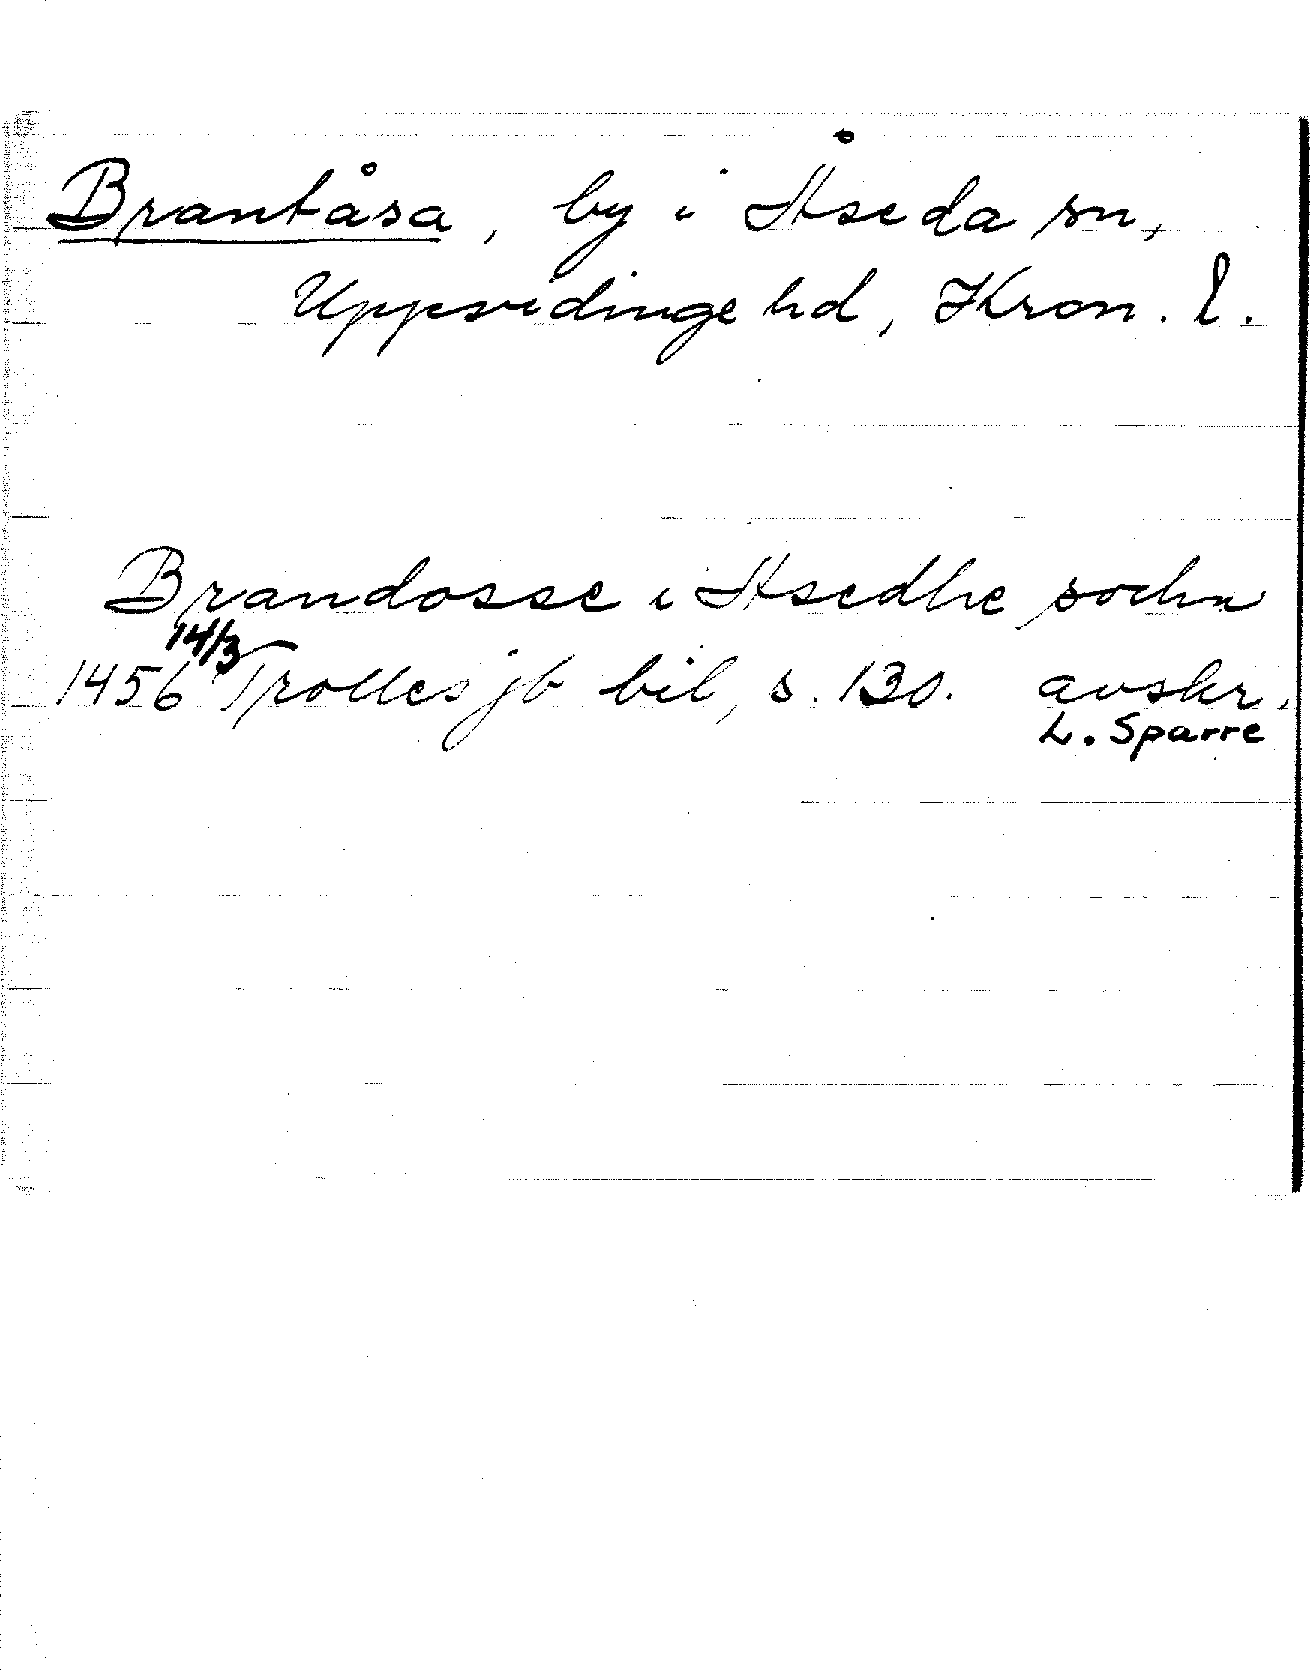 Brantåsa, by i Åseda sn,
Uppvidinge hd, Kron. l.
Brandosse i Asedhe sochn
1456 14/3 Trolles jb bil, s. 130. avskr.
L. Sparre